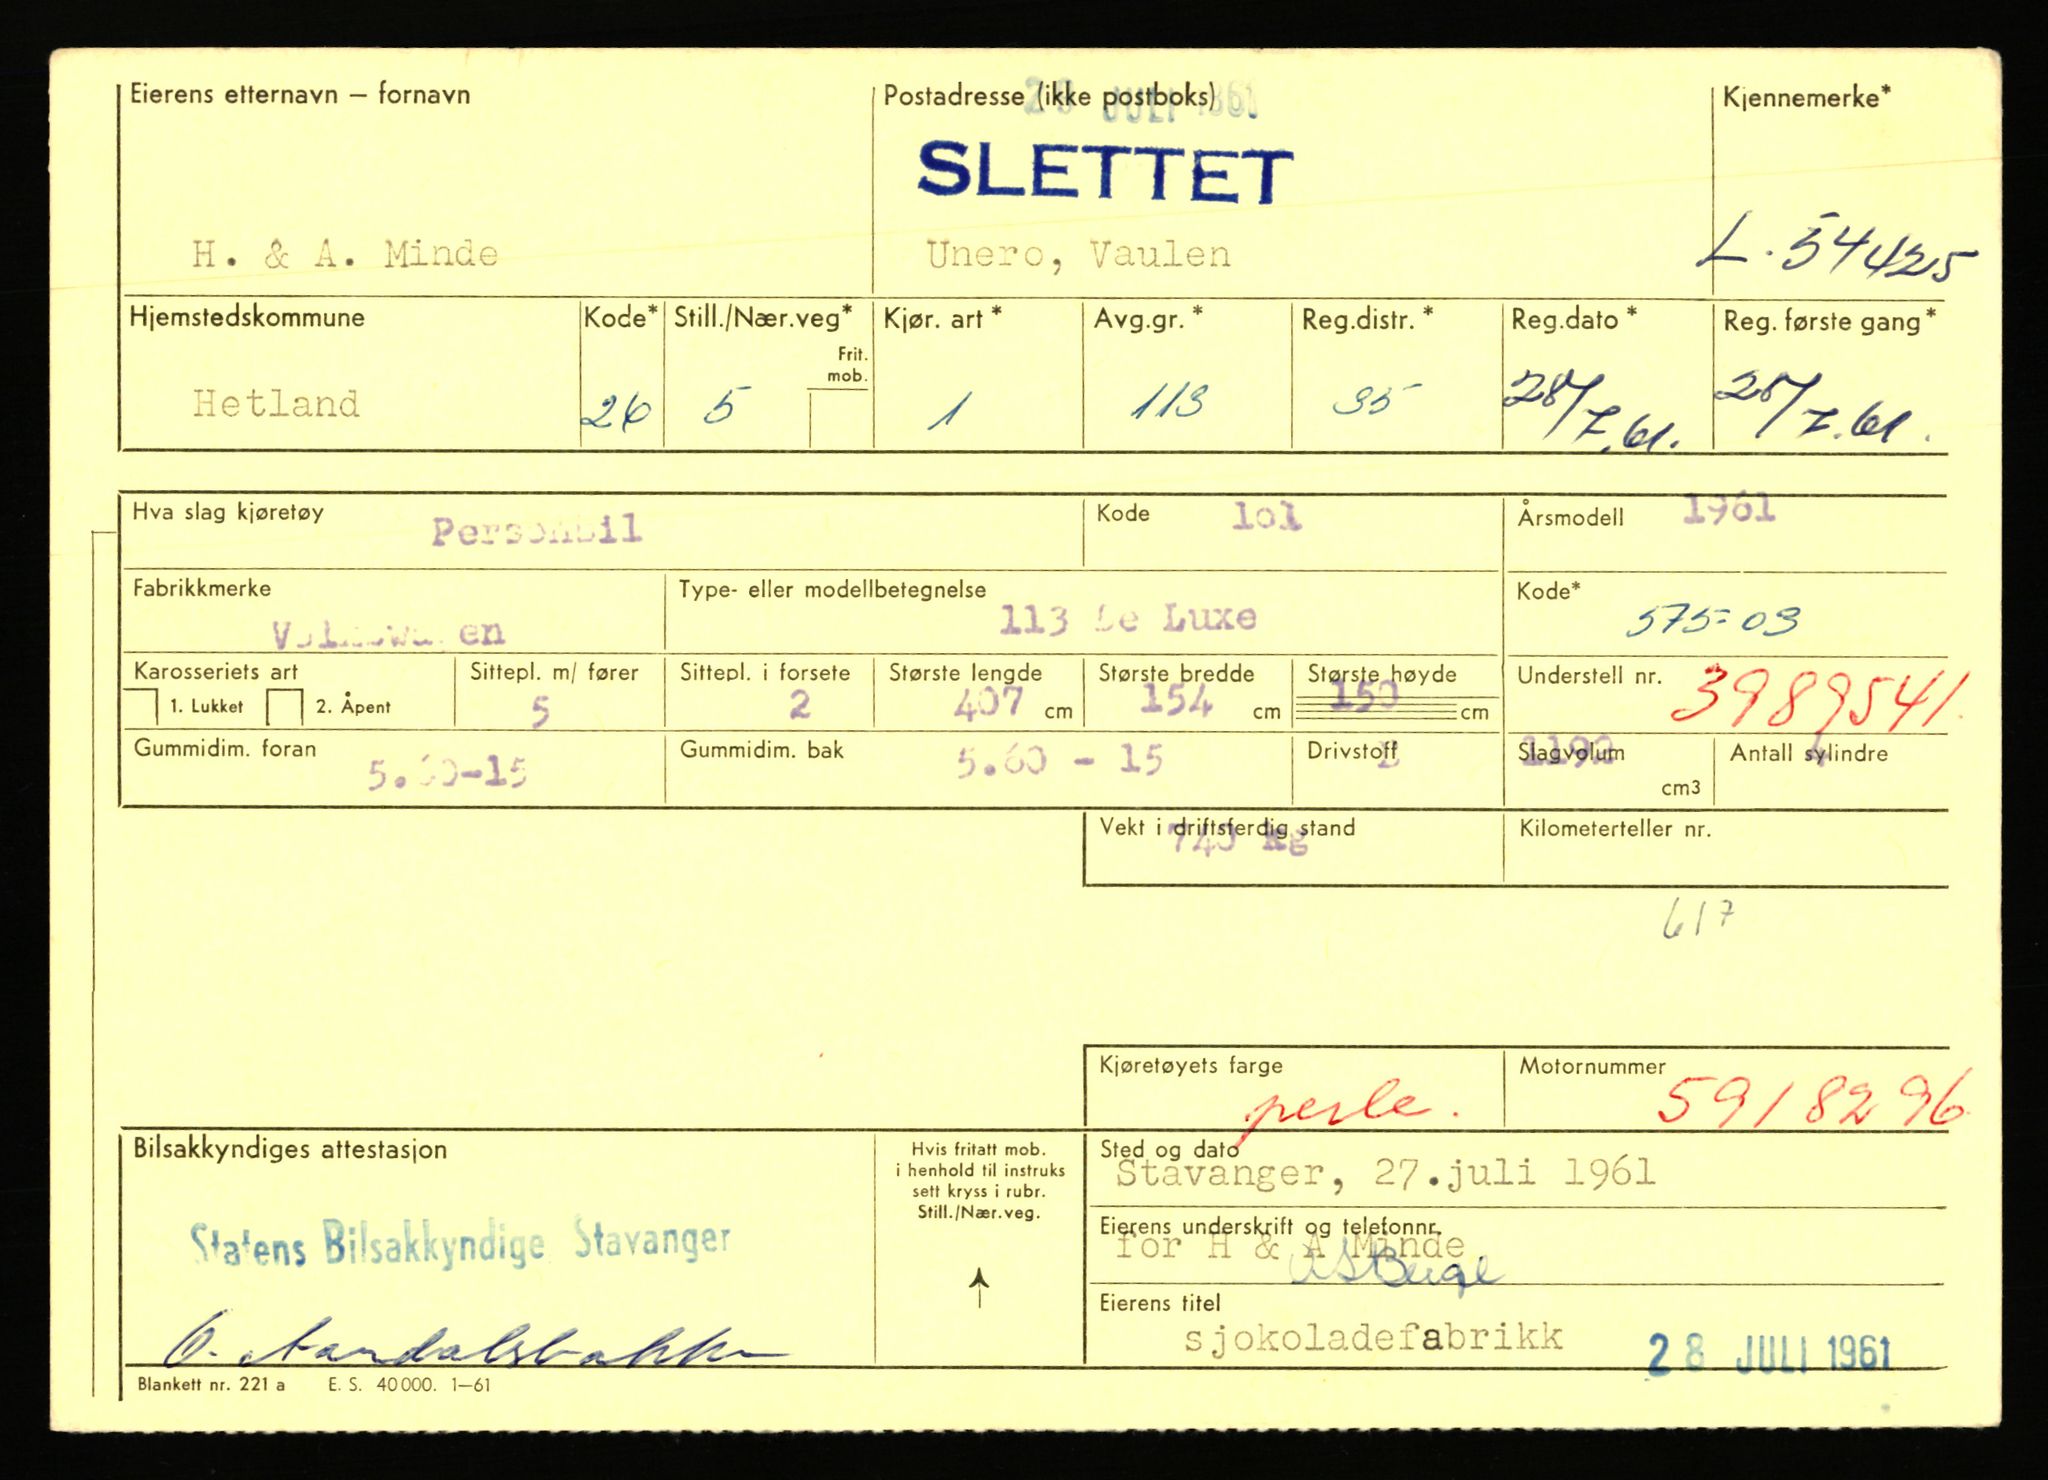 Eierens etternavn — fornavn
Postadresse (ikke postboks)
Kjennemerke*
28 JULI 1961
SLETTET
H. & A. Minde
Unero, Vaulen
L. 54425
Hjemstedskommune
Kode*
Still./Nær.veg*
Frit. mob.
Kjør. art *
Avg.gr. *
Reg.distr. *
Reg.dato *
Reg. første gang *
Hetland
26
5
1
113
35
28/7.61.
28/7.61.
Hva slag kjøretøy
Personbil
Kode
lol
Årsmodell
1961
Fabrikkmerke
Volkswagen
Type- eller modellbetegnelse
113 De Luxe
Kode*
575-03
Karosseriets art
1. Lukket
2. Åpent
Sittepl. m/ fører
5
Sittepl. i forsete
2
Største lengde
407 cm
Største bredde
154 cm
Største høyde
150 cm
Understell nr.
3989541.
Gummidim. foran
5.60-15
Gummidim. bak
5.60 - 15
Drivstoff
Slagvolum
1192
cm3
Antall sylindre
4
Vekt i driftsferdig stand
740 kg
Kilometerteller nr.
617
Kjøretøyets farge
perle.
Motornummer
5918296
Bilsakkyndiges attestasjon
Hvis fritatt mob.
i henhold til instruks
sett kryss i rubr.
Still./Nær.veg.
Sted og dato
Stavanger, 27.juli 1961
Statens Bilsakkyndige Stavanger
Eierens underskrift og telefonnr.
for H & A Minde
Berge
Eierens titel
sjokoladefabrikk
28 JULI 1961
Blankett nr. 221 a E. S. 40 000. 1—61